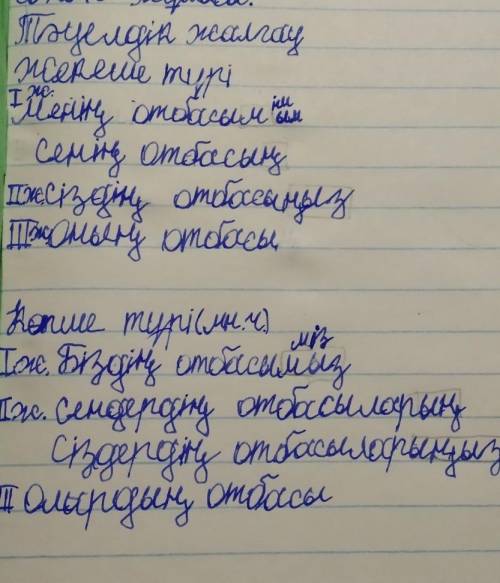 Тәуелдік жалғау
Жекеше түрі
I ж. Менің отбасым ім ым
Сенің отбасың
II ж Сіздің отбасыңыз
III ж Оның отбасы
Көпше түрі (мн.ч.)
I ж. Біздің отбасымыз міз
II ж. Сендердің отбасыларың
Сіздердің отбасыларыңыз
III Олардың отбасы